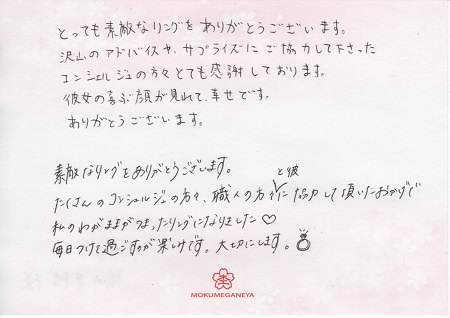 とっても素敵なリングをありがとうございます。
沢山のアドバイスや、サプライズにご協力して下さった
コンシェルジュの方々とても感謝しております。
彼女の喜ぶ顔が見れて、幸せです。
ありがとうございます。
素敵なリングをありがとうございます。
たくさんのコンシェルジュの方々、職人の方々と彼に協力して頂いたおかげで
私のわがままがつまったリングになりました♡
毎日つけて過ごすのが楽しみです。大切にします。
MOKUMEGANEYA